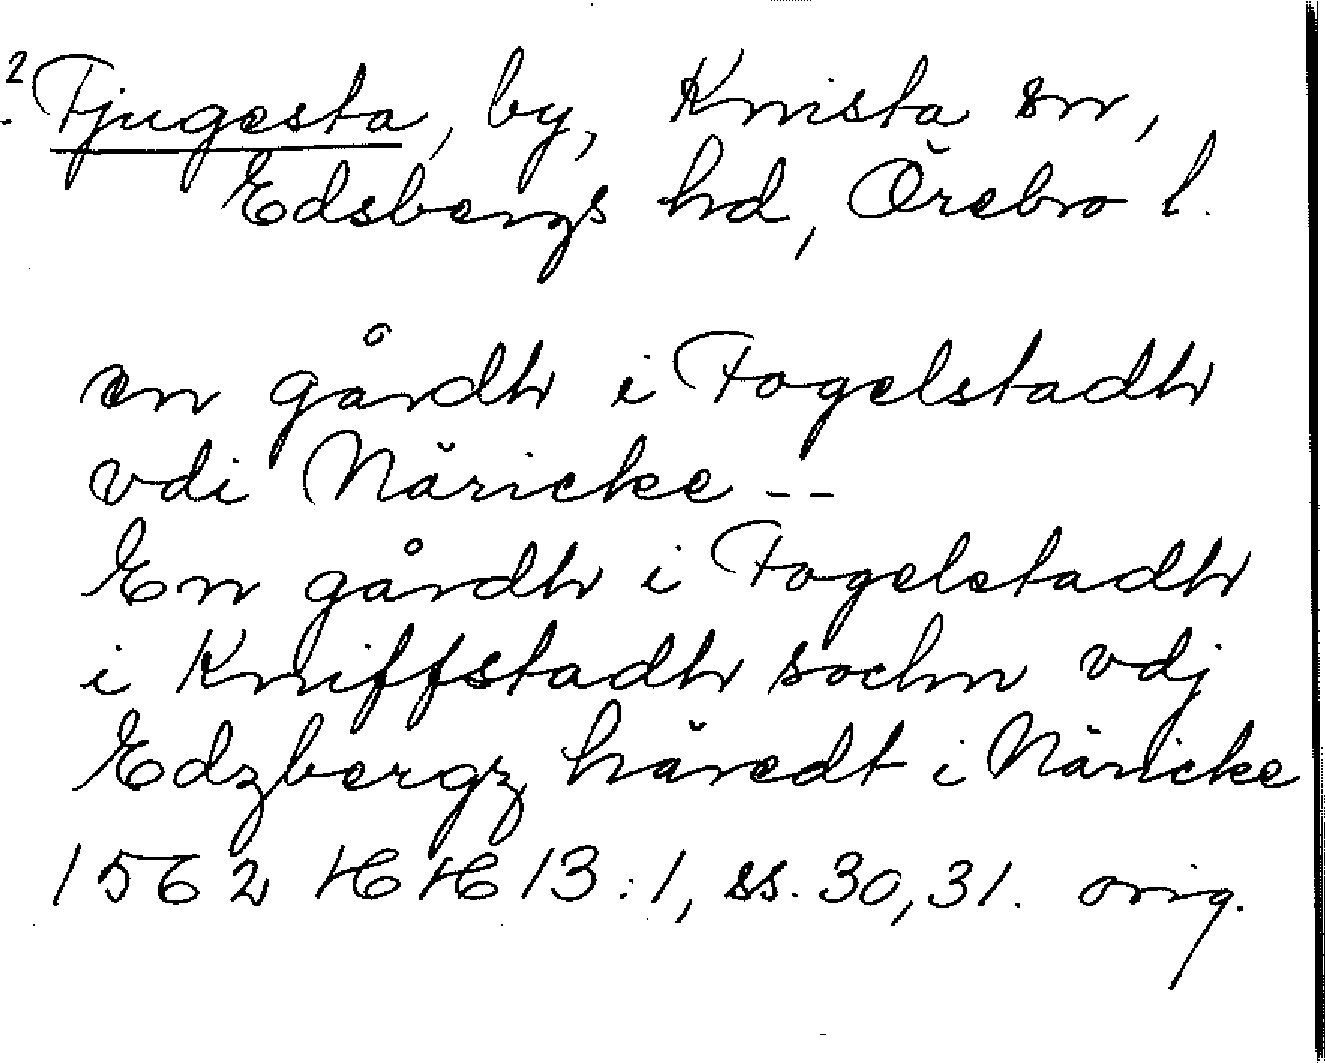 2 Fjugesta, by, Knista sn,
Edsbergs hd, Örebro l.
en gårdh i Fogelstadh
vdi Näricke --
En gårdh i Fogelstadh
i Kniffstadh sochn vdj
Edzbergz häredt i Näricke
1562 HH 13:1, ss. 30, 31. orig.